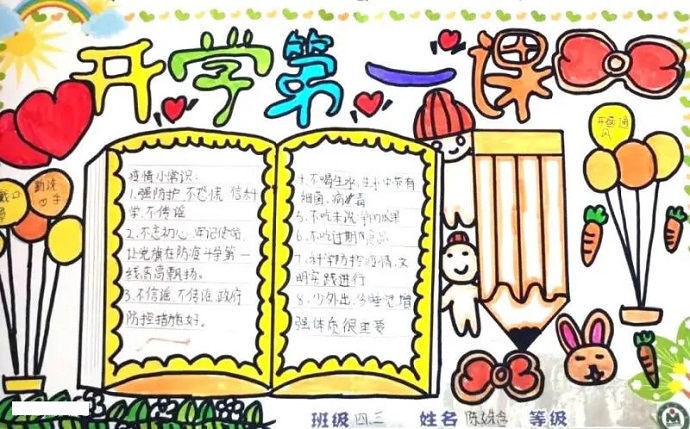 开学第一课
戴口
勤洗
手
开窗通
风
疫情小常识:
1.强防护,不恐慌,信科
学,不传谣
2.不忘初心,牢记使命,
让党旗在防疫斗争第一
线高高飘扬。
3.不信谣,不传谣,政府
防控措施好。
4.不喝生水,生水中带有
细菌,病毒
5.不吃未洗净的瓜果
6.不吃过期的食品
7.科学防控疫情,文
明实践进行
8.少外出,多睡觉,增
强体质很重要
班级 四.三 姓名 陈 等级